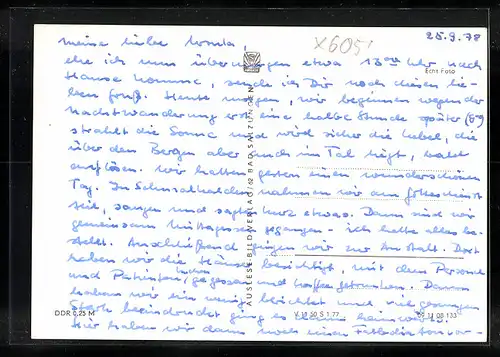 25.9.78
X605
Meine liebe
ehe ich nun übermorgen etwa 13 Uhr nach
Echt Foto
Hause komme, sende ich Dir noch diesen lie-
ben Gruß. Heute morgen, wir beginnen wegen der
Nachtwanderung erst eine halbe Stunde später
strahlt die Sonne und wird sicher die Nebel, die
über den Bergen aber auch im Tal liegt, bald
auflösen. Wir hatten gestern einen wunderschönen
Tag. In Schmalkalden nahmen wir am Gottesdienst
teil, sangen und sagten kurz etwas. Dann sind wir
gemeinsam Mittagessen gegangen - ich hatte alles be-
stellt. Anschließend gingen wir zur Anstalt. Dort
haben wir die Häuser besichtigt, mit dem Personal
und Patienten, Kuchen gegessen und Kaffee getrunken. Dann
haben wir ein wenig berichtet und viel gesungen
Stark beeindruckt ging es dann heimwärts.
Hier haben wir dann noch einen
AUSLESE-BILD-VERLAG 62 BAD SALZUNGEN
DDR 0,25 M
V 11 50 S 1 77
08 133